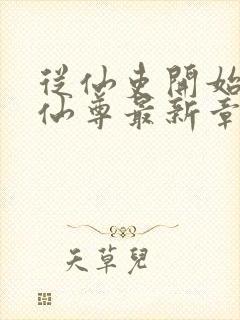 從仙吏開始
仙尊最新章
天草兒